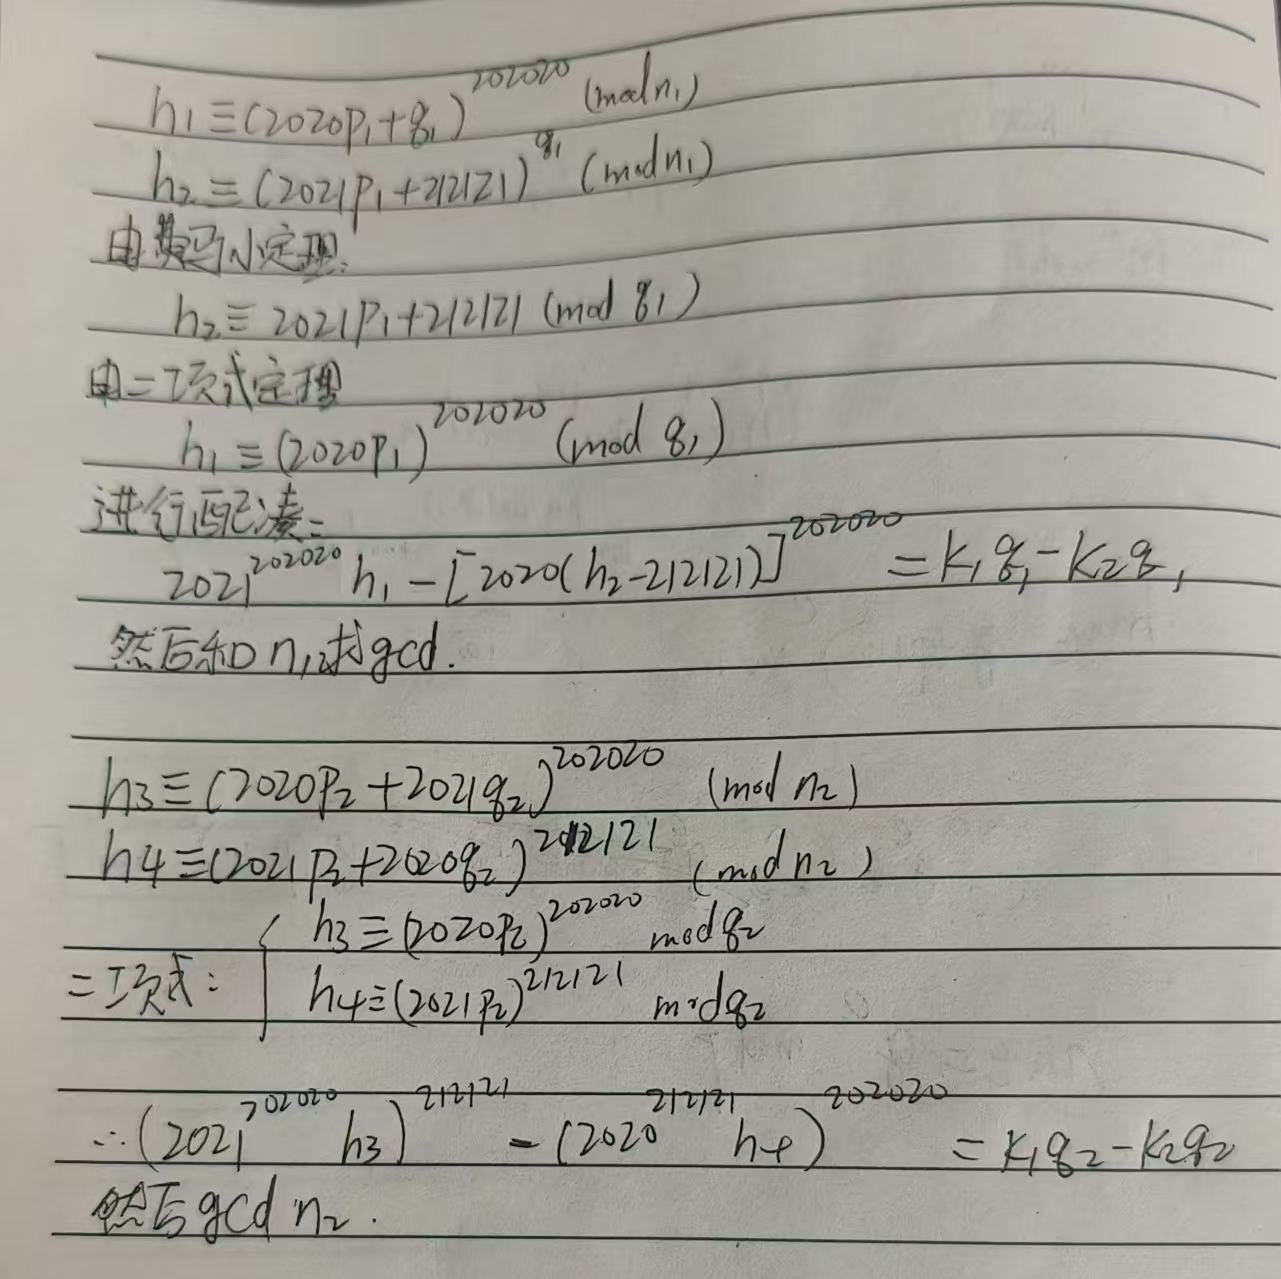 h₁≡(2020p₁+q₁)^202020 (mod n₁)
h₂≡(2021p₁+212121)^q₁ (mod n₁)
由费马小定理:
h₂≡2021p₁+212121 (mod q₁)
由二项式定理
h₁≡(2020p₁)^202020 (mod q₁)
进行配凑:
2021^202020 h₁-[2020(h₂-212121)]^202020 =k₁q₁-k₂q₁
然后和n₁求gcd.
h3≡(2020p₂+2021q₂)^202020 (mod n₂)
h4≡(2021p₂+2020q₂)^212121 (mod n₂)
h3≡(2020p₂)^202020 mod q₂
二项式:
h4≡(2021p₂)^212121 mod q₂
∴(2021^202020 h3)^212121 - (2020^212121 h4)^202020 =k₁q₂-k₂q₂
然后gcd n₂.